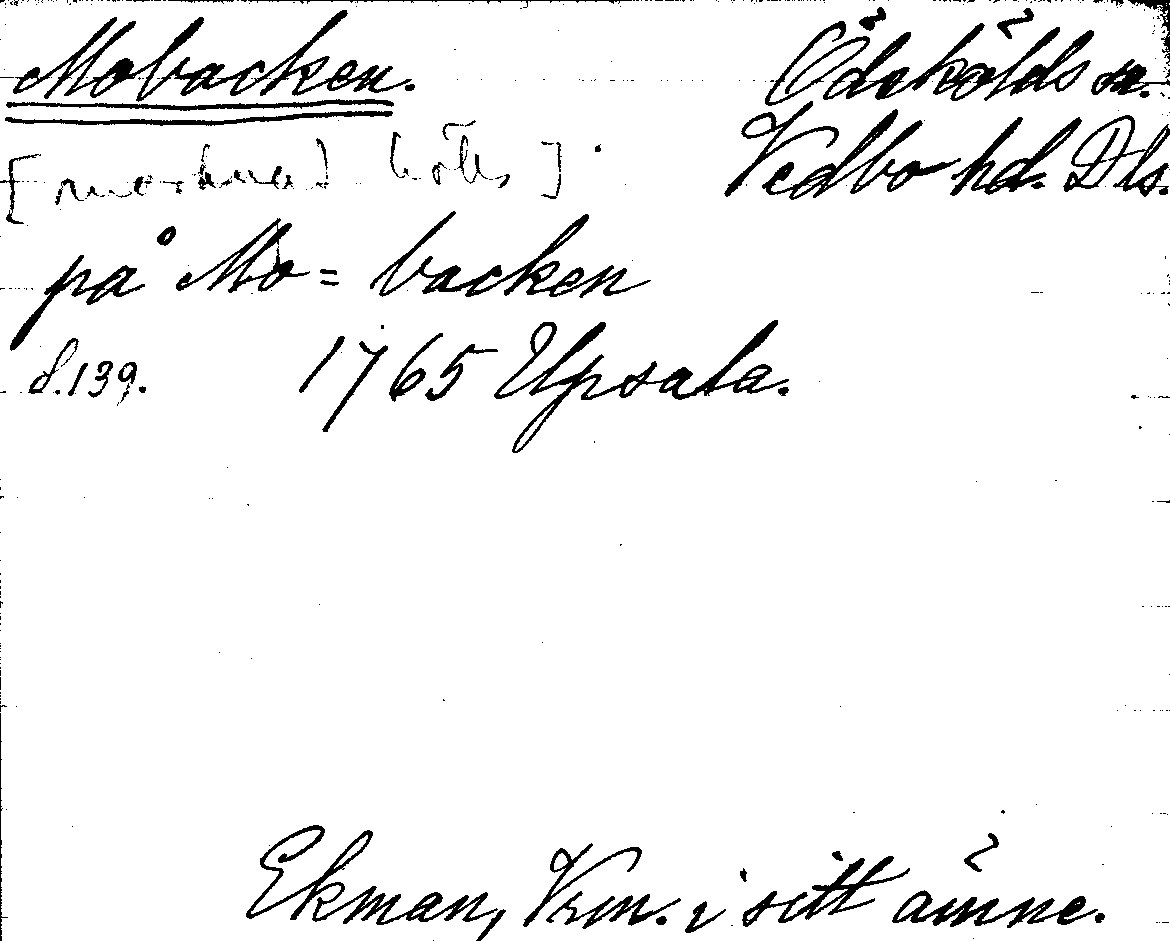 Mobacken.
Ödskölds sn.
Vedbo hd. Dls.
[marknad hölls]
på Mo= backen
s.139. 1765 Upsala.
Ekman, Vrm. i sitt ämne.